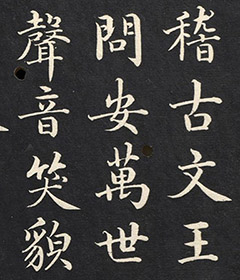 稽古文王
問安萬世
聲音笑貌